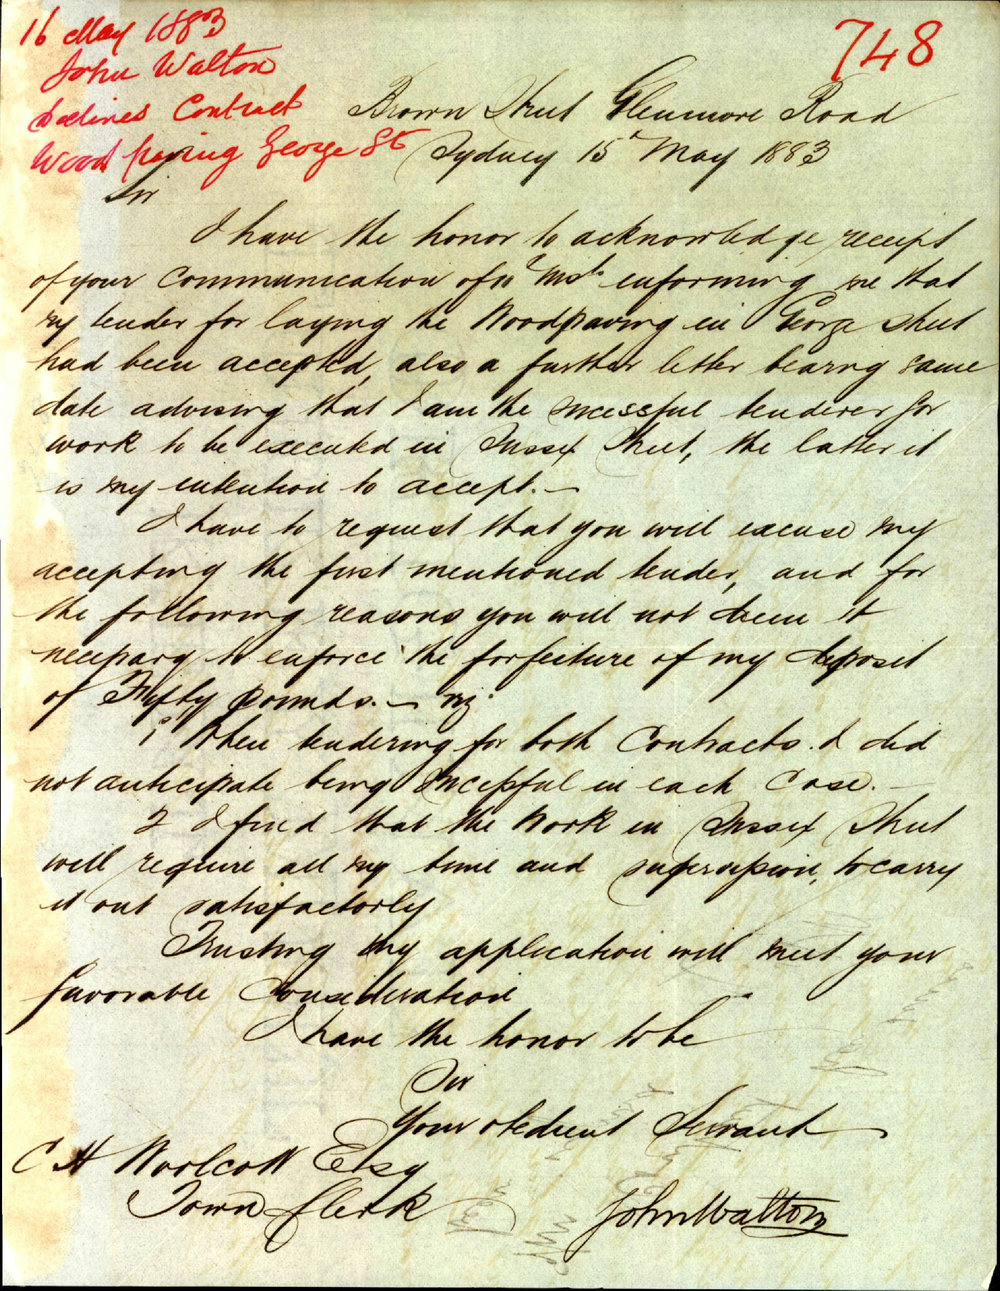 16 May 1883
John Walton
declines Contract
Wood paving George St
748
Brown Street Glenmore Road
Sydney 15 May 1883
Sir
I have the honor to acknowledge receipt
of your communication of inst informing me that
my tender for laying the Woodpaving in George Street
had been accepted, also a further letter bearing same
date advising that I am the successful tenderer for
work to be executed in Sussex Street, the latter it
is my intention to accept. —
I have to request that you will excuse my
accepting the first mentioned tender, and for
the following reasons you will not deem it
necessary to enforce the forfeiture of my deposit
of Fifty pounds. — viz.
1st When tendering for both Contracts. I did
not anticipate being successful in each Case. —
2 I find that the Work in Sussex Street
will require all my time and supervision, to carry
it out satisfactorly
Trusting my application will meet your
favorable Consideration
I have the honor to be
Sir
Your obedient Servant
C H Woolcott Esq
Town Clerk
John Walton